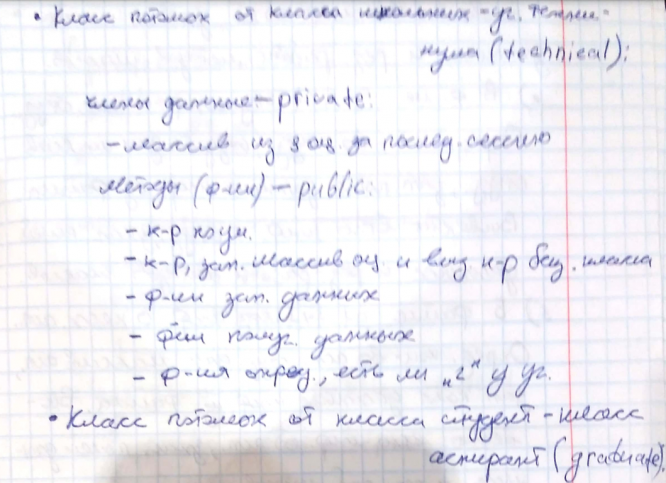 • Класс потомок от класса школьник - уч. техни-
кума (technical):
члены данные - private:
- массив из оц. за послед. сессию
Методы (ф-ии) - public:
- к-р поум.
- к-р, зап. массив оц. и выз к-р баз. класса
- ф-ии зап. данных
- ф-ии получ. данных
- ф-ия опред., есть ли "2" у уч.
• Класс потомок от класса студент - класс
аспирант (graduate).